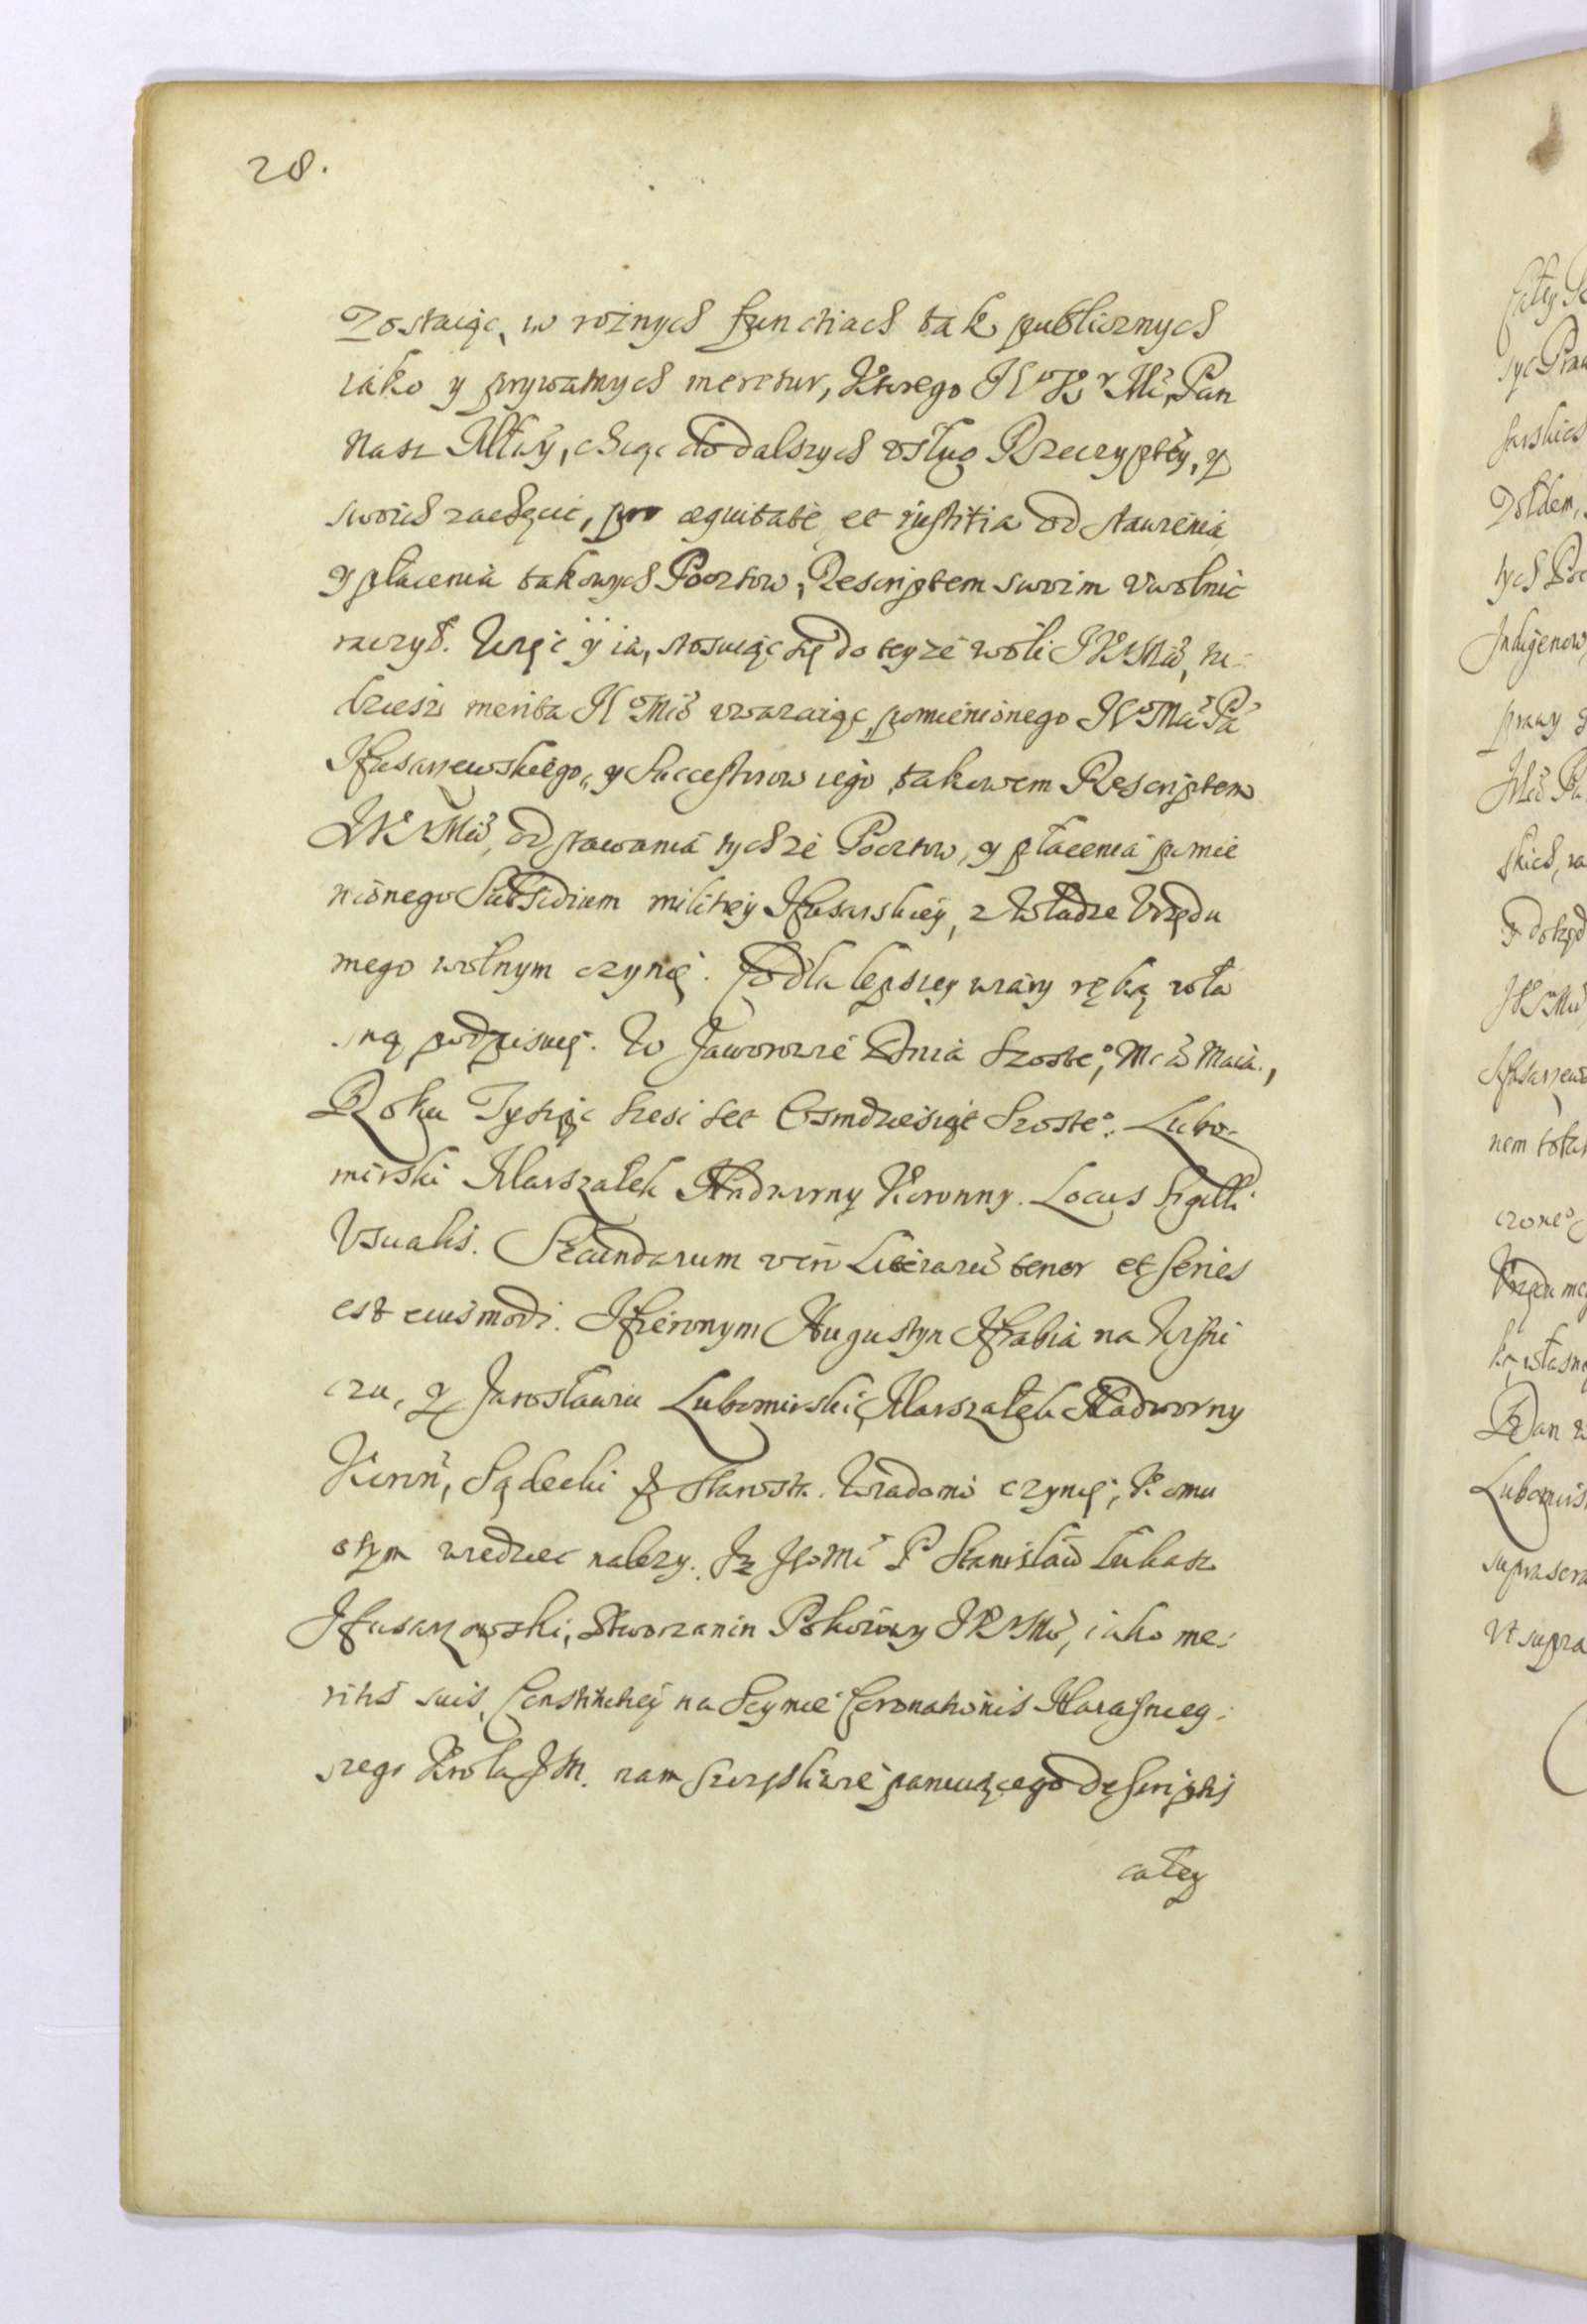 28.
Zostaiąc, w rożnych functiach tak publicznych
iako y prywatnych meretur, Ktorego JKo Kr Mć, Pan
Nasz Młwy, chcąc do dalszych vsług Rzeczyptey, y
swoich zachęcić, pro æquitate et justitia od stawienia
y płacenia takowych Pocztow, Rescriptem swoim vwolnic
raczył. Więc y ia, stosuiąc się do teyże woli JKrMci, tu-
dziesz merita JKoMci vwazaiąc, pomienionego JKoMci Pa
Husarzewskiego, y Successorow iego takowem Rescriptem
JKrMci, od stawania tychże Pocztow, y płacenia pomie
nionego Subsidium militey Husarskiey, z Władze Vrzędu
mego wolnym czynię. Co dla lepszey wiary ręką wła
sną podpisuię. W Jaworowie Dnia Szosteo, Mca Maia,
Roku Tysiąc Szesc set Osmdziesiąt Szosteo. Lubo-
mirski Marszałek Nadworny Koronny. Locus Sigilli
Vsualis. Secundarum vero Literaru tenor et series
est eiusmodi. Hieronym Augustyn Hrabia na Wisni
czu, y Jarosławiu Lubomirski, Marszałek Nadworny
Koron, Sądecki & Starosta. Wiadomo czynię, Komu
otym wiedziec nalezy. Iz JegoMć P Stanisław Łukasz
Husarzowski, Dworzanin Pokoiowy JKrMci, iako me-
ritis suis, Constitutey na Seymie Coronationis Naiasniey-
szego Krola JM. nam szczęsliwie panuiącego descriptis
całey